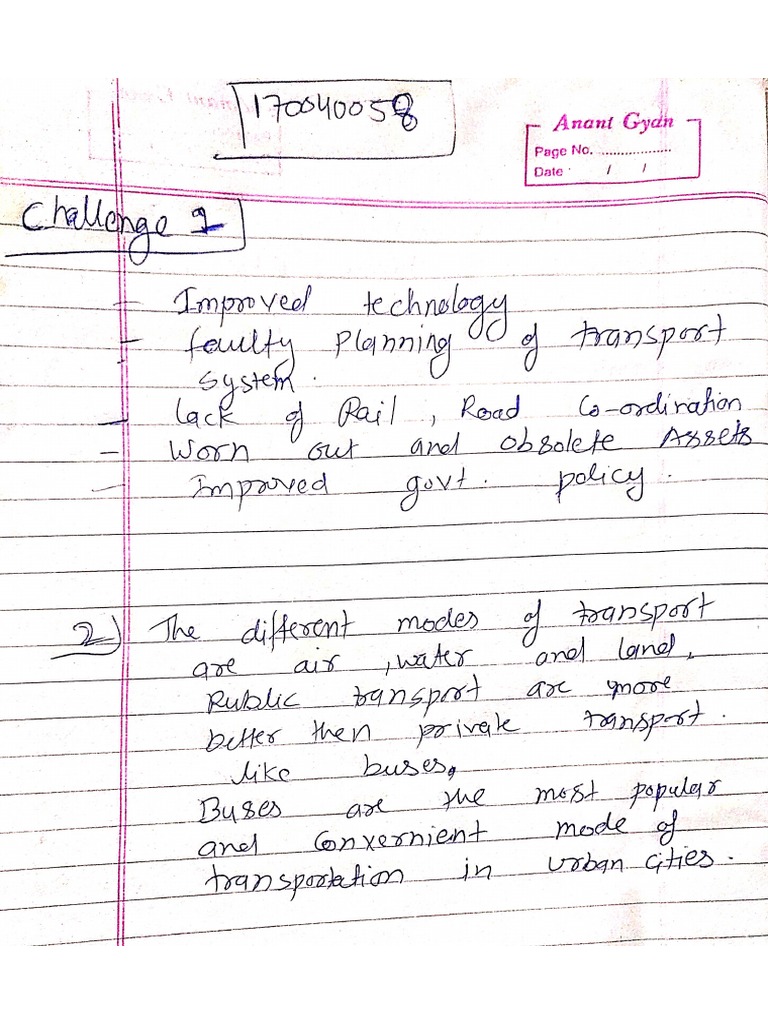 170040058
Anant Gyan
Page No. ....................
Date / /
Challenge 1
- Improved technology
- faulty Planning of transport
system.
- Lack of Rail, Road Co-ordination
- Worn out and obsolete Assets
- Improved govt. policy.
2) The different modes of transport
are air, water and land,
Public transport are more
better then private transport.
like buses,
Buses are the most popular
and Convernient mode of
transportation in urban cities.